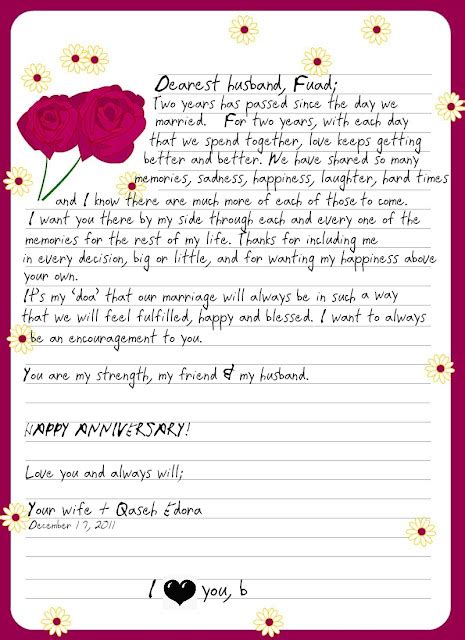 Dearest husband, Fuad;
Two years has passed since the day we
married. For two years, with each day
that we spend together, love keeps getting
better and better. We have shared so many
memories, sadness, happiness, laughter, hard times
and I know there are much more of each of those to come.
I want you there by my side through each and every one of the
memories for the rest of my life. Thanks for including me
in every decision, big or little, and for wanting my happiness above
your own.
It's my 'doa' that our marriage will always be in such a way
that we will feel fulfilled, happy and blessed. I want to always
be an encouragement to you.
You are my strength, my friend & my husband.
HAPPY ANNIVERSARY!
Love you and always will;
Your wife + Qaseh Edora
December 17, 2011
I ♥ you, b